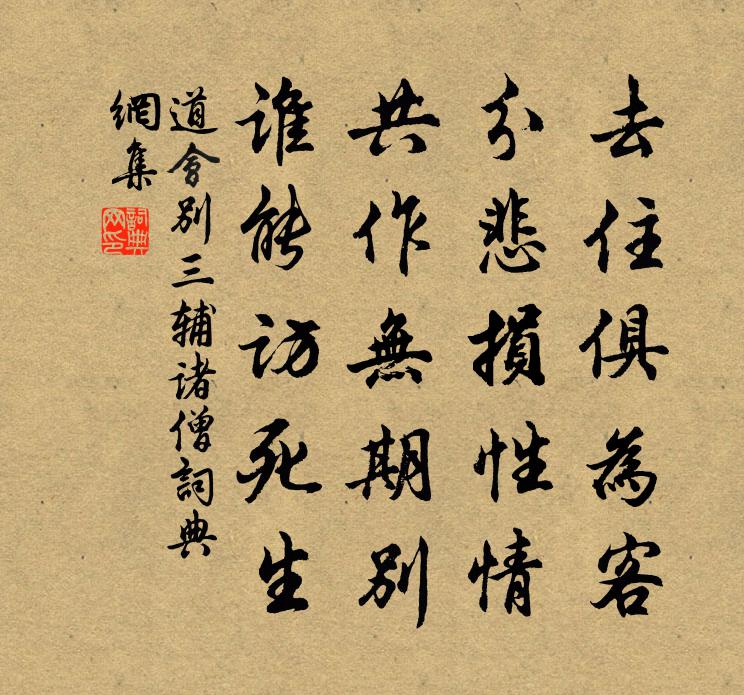 去住俱為客
分悲損性情
共作無期別
誰能訪死生
道會別三輔诸僧詞典
網集
詞典
网印